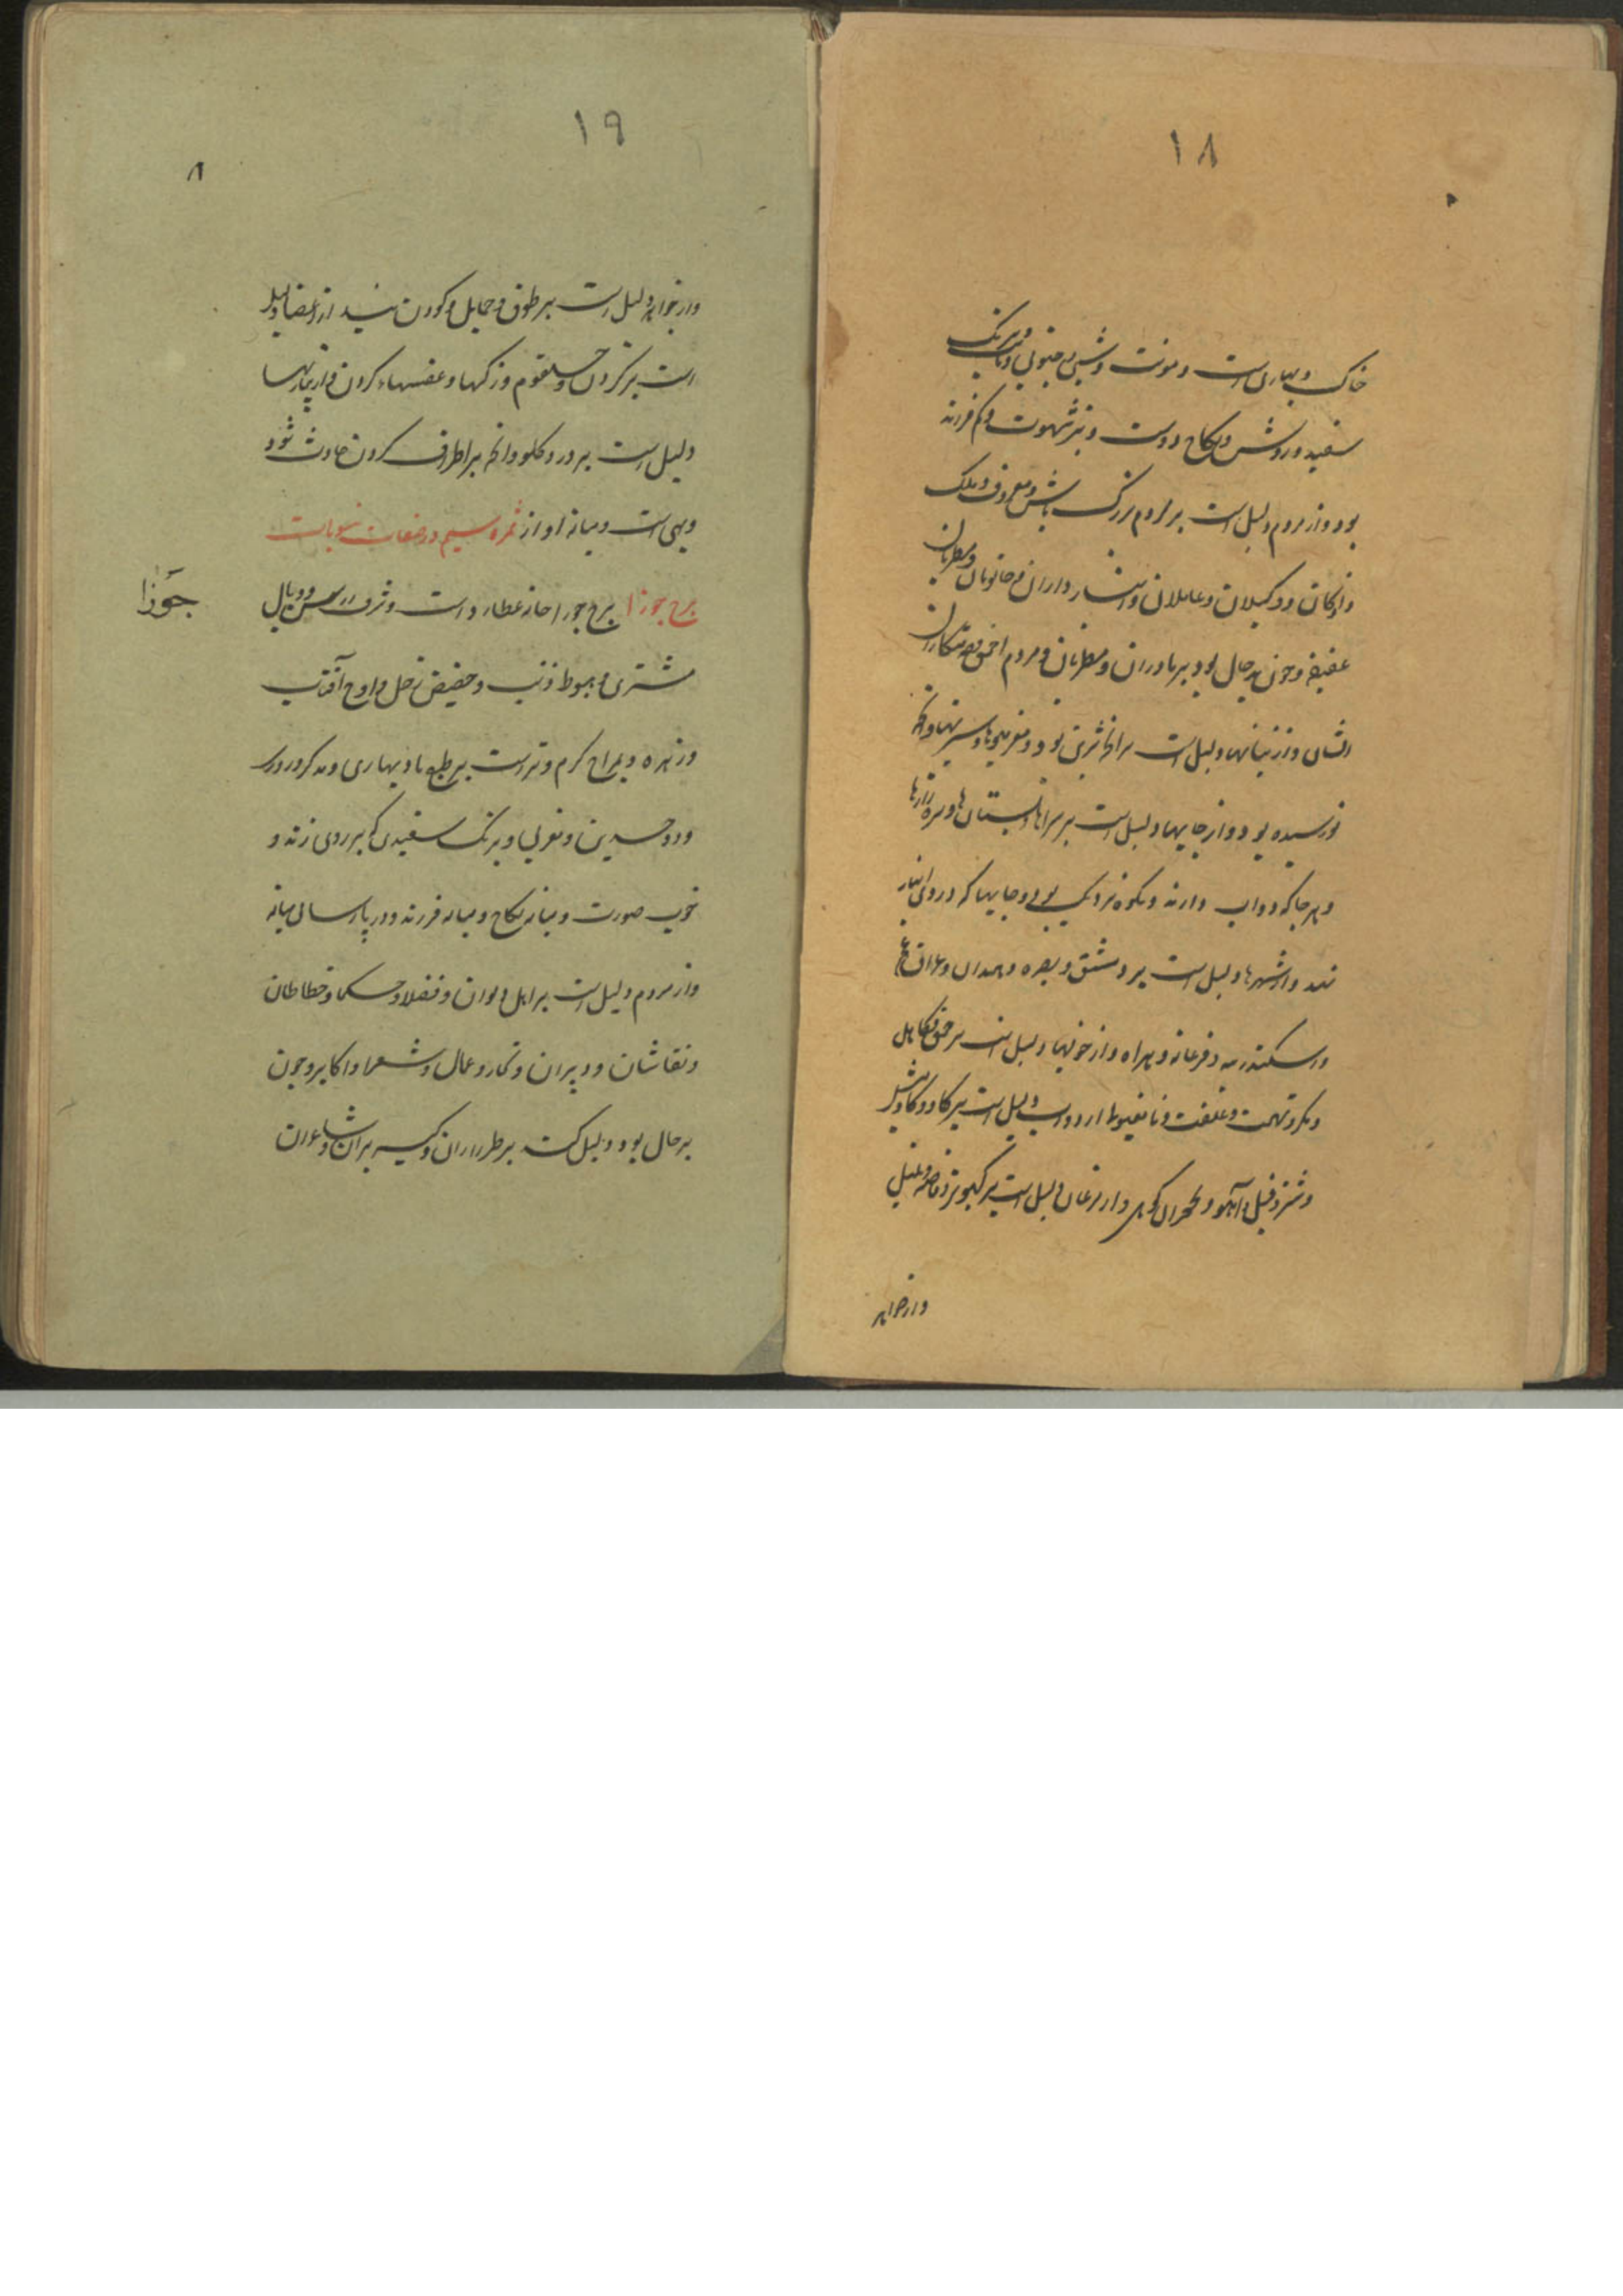 ١٨
خاکی و بهاری است و مونث و شبی و جنوبی و ثابت و برنگ
سفید و روشن و نکاح دوست و تیز شهوت و کم فرزند
بود و از مردم دلیل است بر مردم بزرگ باش و معروف و ملک
زادگان و وکیلان و عاملان و دستار داران و خاتونان و مطربان
عفیفه و چون بد حال بود بر مادران و مطربان و مردم احمق و ستمکاران
ایشان و از نباتها دلیل است بر انچه شیرین بود و میوها و سبزیها و انچه
نورسیده بود و از جایها دلیل است بر سراها و بستان ها و سبزه زارها
و هر جا که دواب دارند و بکوه نزدیک بود و جایها که در وی انبار
نهند و از شهرها دلیل است بر دمشق و بصره و همدان و عراق عجم
و اسکندریه و فرغانه و هراه و از خویها دلیل است بر حمق و کاهل
و مکر و تهمت و غفلت و از دواب دلیل است بر کاو و کاومیش
و شتر و فیل و آهو و خران کوهی و از مرغان دلیل است بر کبوتر و فاخته و بلبل
و از جواهر
١٩
٨
و از جواهر دلیل است بر طوق و حمایل و کردن بند از اعضا دلیل
است بر کردن و حلقوم و رکها و عضبهاء کردن و از بیماریها
دلیل است بر درد کلو و انچه بر اطراف کردن حادث شود
وهی است و میانه آواز ثمره سیم در صفات منسوبات
برج جوزا برج جوزا خانه عطارد است و شرف راس و وبال
جوزا
مشتری و هبوط ذنب و حضیض زحل و اوج آفتاب
و زهره و بمزاج کرم و تر است بر طبع باد بهاری و مذکر و روزی
و دو جسدین و مغربی و برنک سفیدی که بزردی زند و
خوب صورت و میانه نکاح و میانه فرزند و در پارسائی میانه
و از مردم دلیل است بر اهل دیوان و فضلا و حکما و خطاطان
و نقاشان و دبیران و تجار و عمال و شعرا و اکابر و چون
بدحال بود دلیل است بر طراران و کیسه بران و شاعران